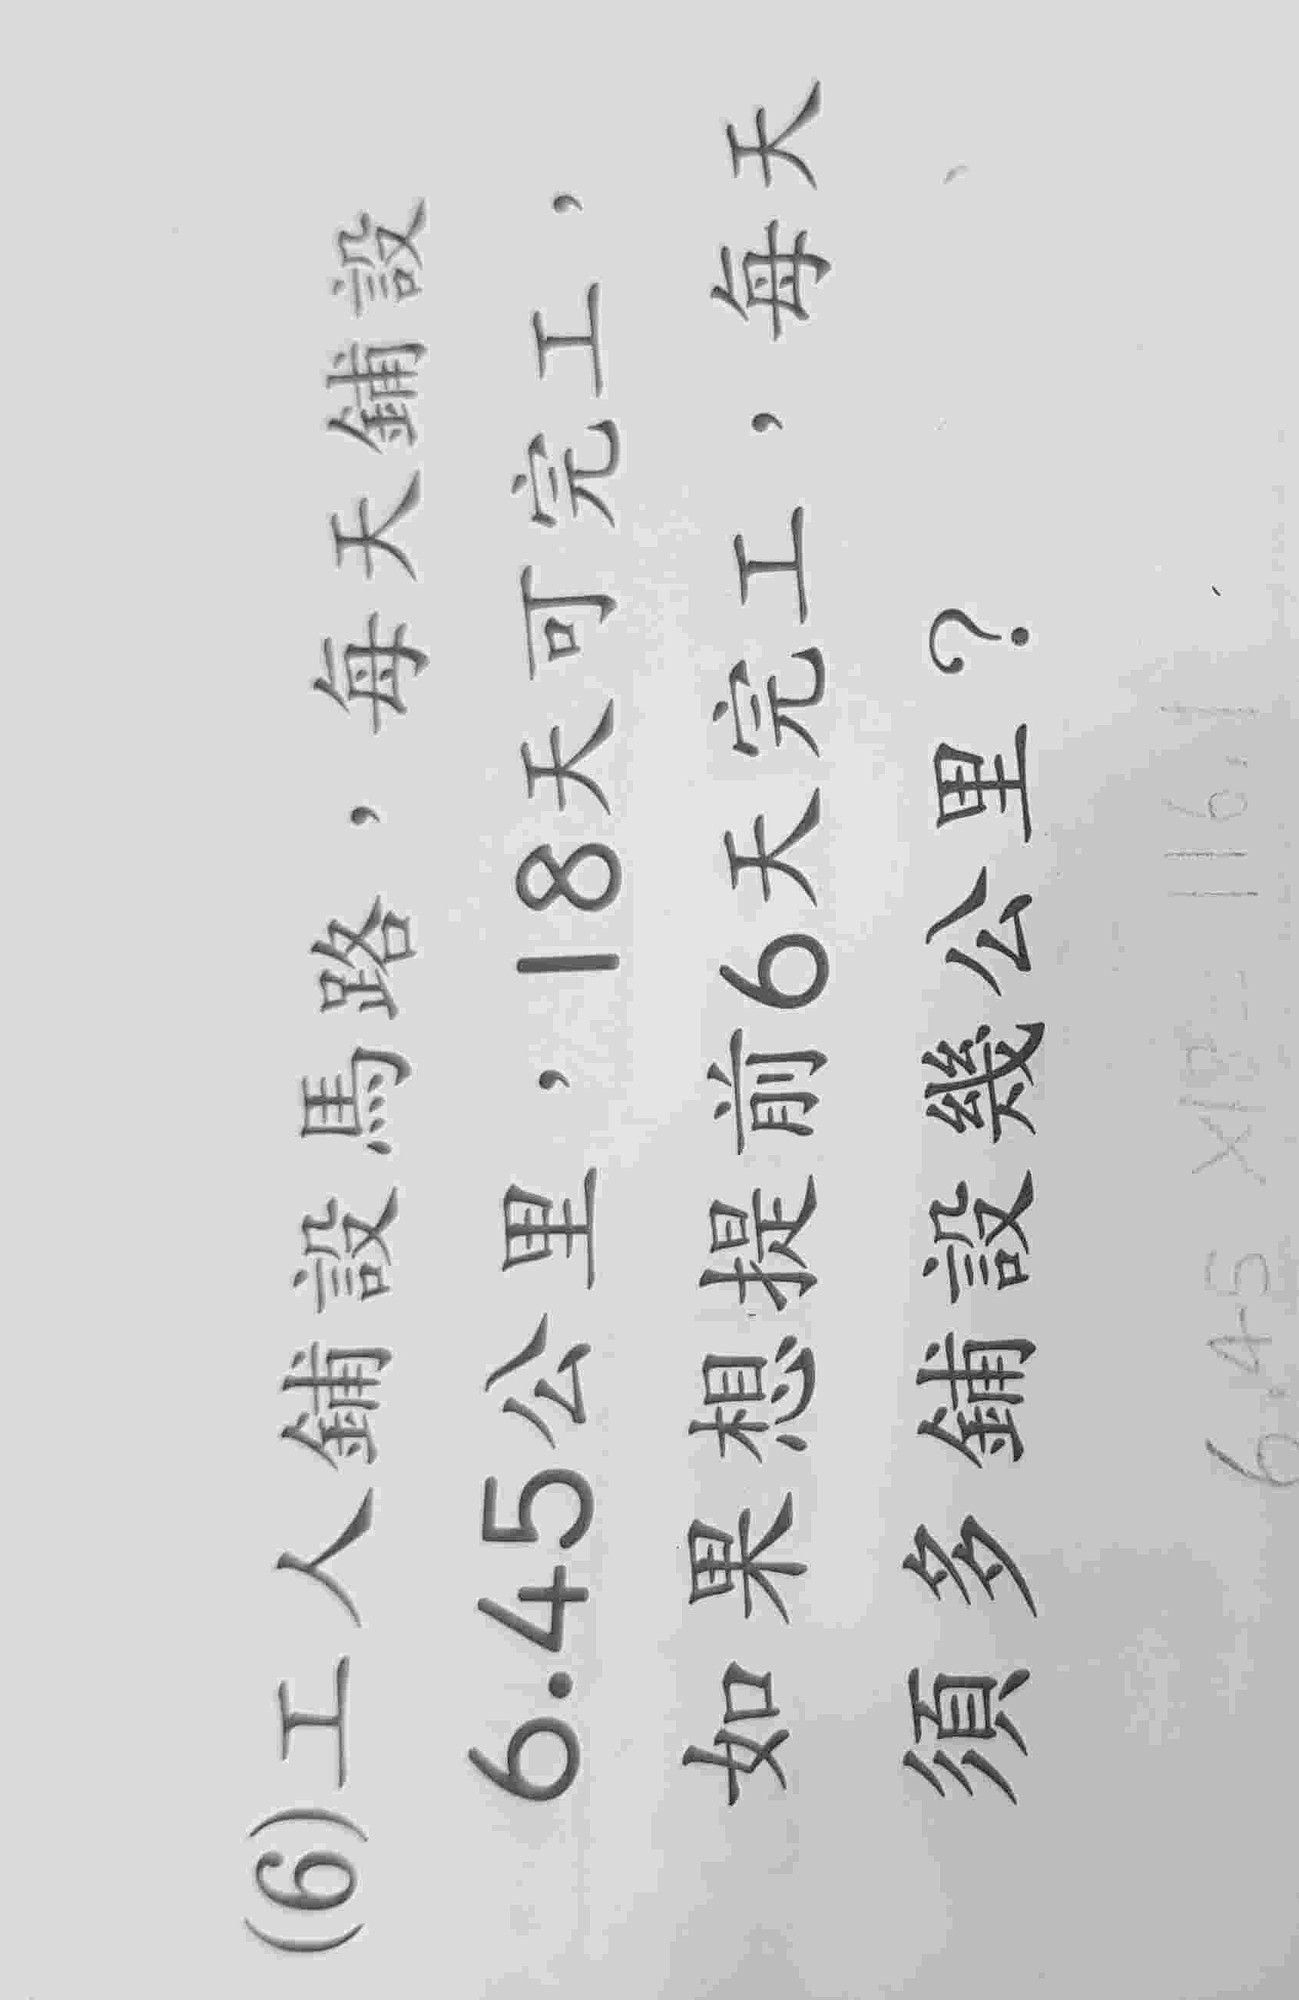 (6)工人鋪設馬路，每天鋪設
6.45公里，18天可完工，
如果想提前6天完工，每天
須多鋪設幾公里？
6.45×18=116.1